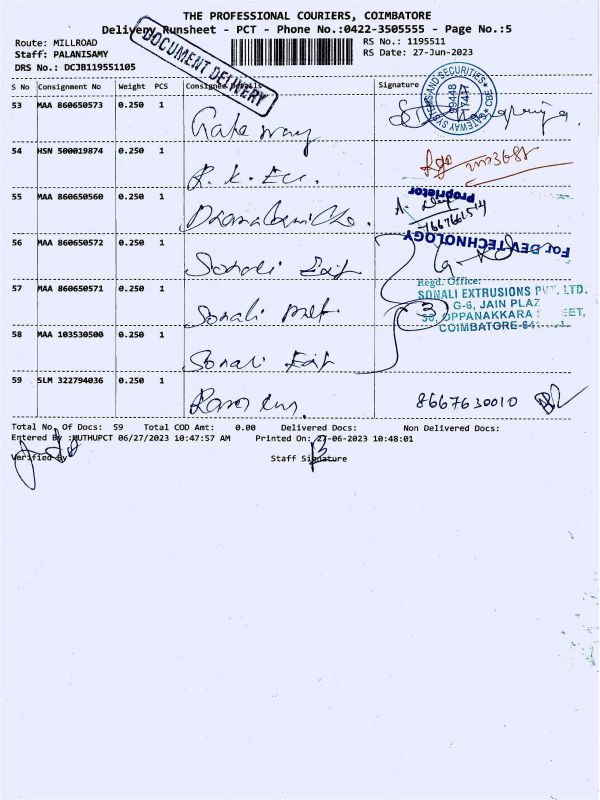 THE PROFESSIONAL COURIERS, COIMBATORE
Delivery Runsheet - PCT - Phone No.:0422-3505555 - Page No.:5
Route: MILLROAD
RS No.: 1195511
Staff: PALANISAMY
RS Date: 27-Jun-2023
DRS No.: DCJB119551105
DOCUMENT DELIVERY
S No Consignment No Weight PCS Consignee Details Signature
53 MAA 860650573 0.250 1 Gate way
GATEWAY SIGNS AND SECURITIES CBE
99448 77417
54 HSN 500019874 0.250 1 R. K. Ecc.
55 MAA 860650560 0.250 1
Proprietor
For DEV TECHNOLOGY
56 MAA 860650572 0.250 1 Sonali Exf
57 MAA 860650571 0.250 1 Sonali
Regd. Office:
SONALI EXTRUSIONS PVT. LTD.
G-6, JAIN PLAZ
30, OPPANAKKARA EET,
COIMBATORE-64
3
58 MAA 103530500 0.250 1 Sonali Exf
59 SLM 322794036 0.250 1 8667630010
Total No. Of Docs: 59 Total COD Amt: 0.00 Delivered Docs: Non Delivered Docs:
Entered By :MUTHUPCT 06/27/2023 10:47:57 AM Printed On: 27-06-2023 10:48:01
Verified By
Staff Signature